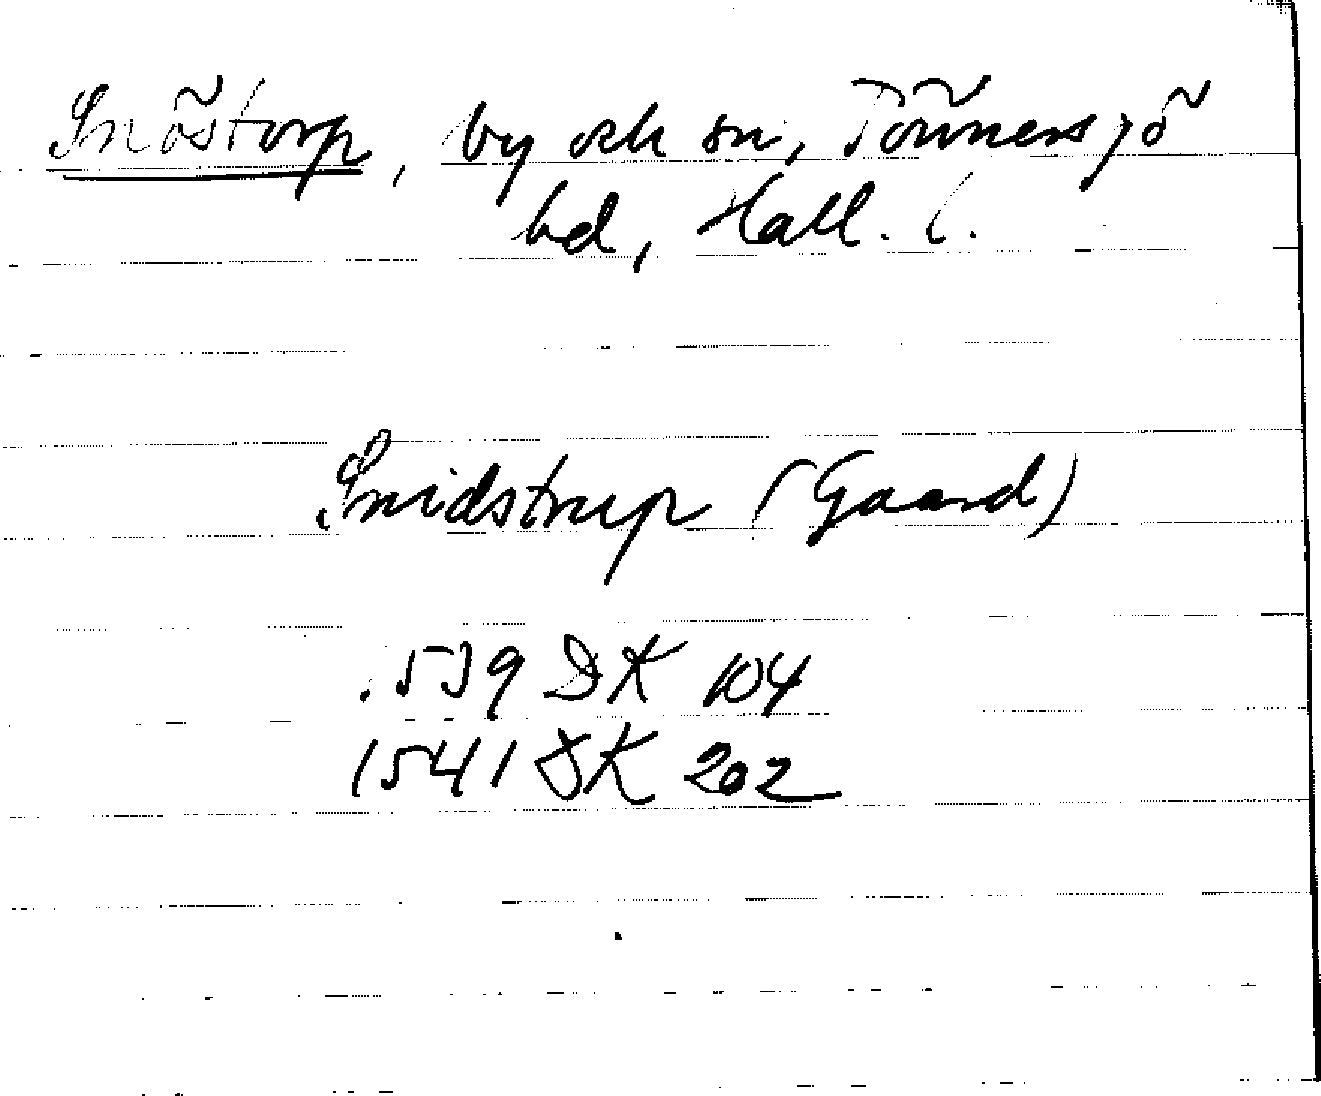 Snöstorp, by och sn, Tönnersjö
hd, Hall. l.
Snidstrup (Gaard)
.539 DK 104
1541 DK 202